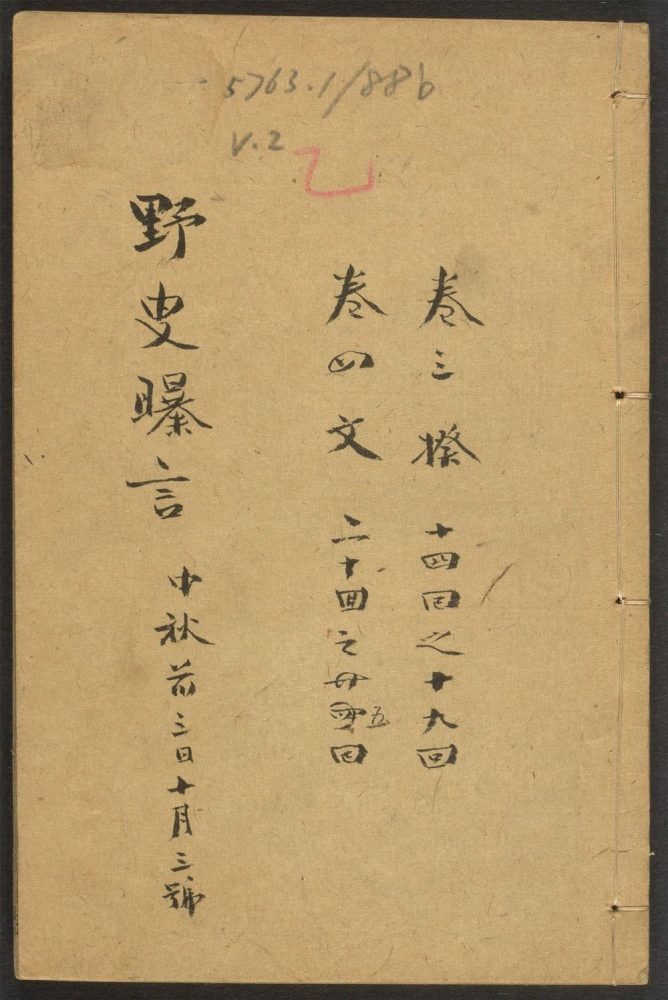 5763.1/886
V.2
乙
卷三 揆 十四回之十九回
卷四 文 二十回之廿五回
野叟曝言 中秋前三日十月三號